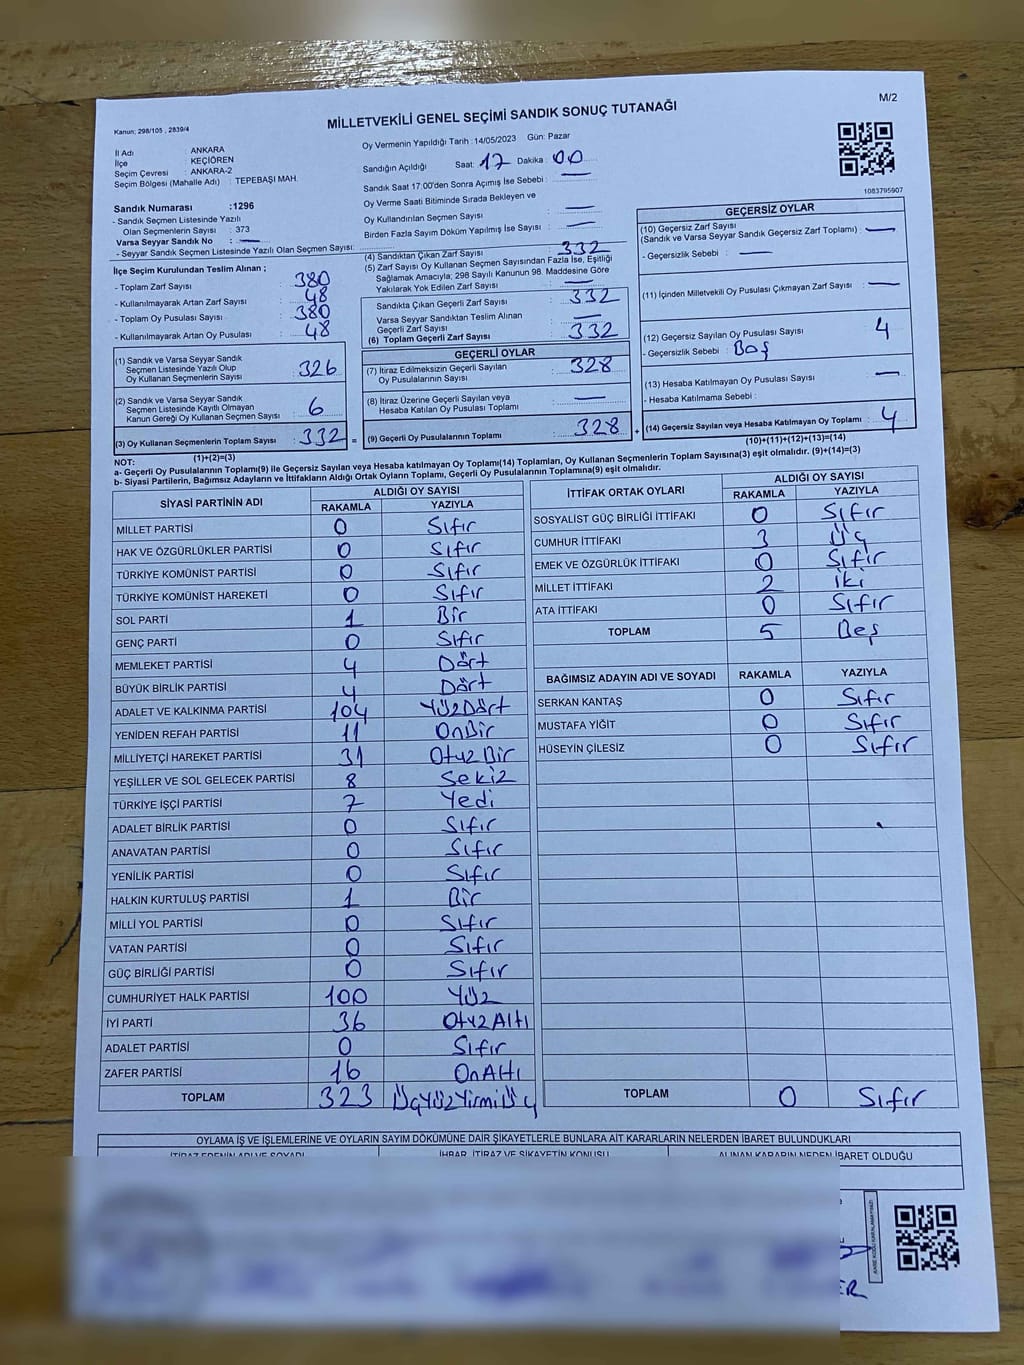 M/2
MİLLETVEKİLİ GENEL SEÇİMİ SANDIK SONUÇ TUTANAĞI
Kanun; 298/105 , 2839/4
İl Adı : ANKARA
İlçe : KEÇİÖREN
Seçim Çevresi : ANKARA-2
Seçim Bölgesi (Mahalle Adı) : TEPEBAŞI MAH.
Oy Vermenin Yapıldığı Tarih : 14/05/2023 Gün: Pazar
Sandığın Açıldığı Saat: 17 Dakika : 00
Sandık Saat 17.00'den Sonra Açımış İse Sebebi : —
Oy Verme Saati Bitiminde Sırada Bekleyen ve
Oy Kullandırılan Seçmen Sayısı : —
Birden Fazla Sayım Döküm Yapılmış İse Sayısı : —
1083795907
Sandık Numarası :1296
- Sandık Seçmen Listesinde Yazılı
Olan Seçmenlerin Sayısı : 373
Varsa Seyyar Sandık No : —
- Seyyar Sandık Seçmen Listesinde Yazılı Olan Seçmen Sayısı:
İlçe Seçim Kurulundan Teslim Alınan ;
- Toplam Zarf Sayısı : 380
- Kullanılmayarak Artan Zarf Sayısı : 48
- Toplam Oy Pusulası Sayısı : 380
- Kullanılmayarak Artan Oy Pusulası : 48
(1) Sandık ve Varsa Seyyar Sandık
Seçmen Listesinde Yazılı Olup
Oy Kullanan Seçmenlerin Sayısı : 326
(2) Sandık ve Varsa Seyyar Sandık
Seçmen Listesinde Kayıtlı Olmayan
Kanun Gereği Oy Kullanan Seçmen Sayısı : 6
(3) Oy Kullanan Seçmenlerin Toplam Sayısı : 332 =
(1)+(2)=(3)
(4) Sandıktan Çıkan Zarf Sayısı : 332
(5) Zarf Sayısı Oy Kullanan Seçmen Sayısından Fazla İse, Eşitliği
Sağlamak Amacıyla; 298 Sayılı Kanunun 98. Maddesine Göre
Yakılarak Yok Edilen Zarf Sayısı : —
Sandıkta Çıkan Geçerli Zarf Sayısı : 332
Varsa Seyyar Sandıktan Teslim Alınan
Geçerli Zarf Sayısı : —
(6) Toplam Geçerli Zarf Sayısı : 332
GEÇERLİ OYLAR
(7) İtiraz Edilmeksizin Geçerli Sayılan
Oy Pusulalarının Sayısı : 328
(8) İtiraz Üzerine Geçerli Sayılan veya
Hesaba Katılan Oy Pusulası Toplamı : —
(9) Geçerli Oy Pusulalarının Toplamı : 328 +
GEÇERSİZ OYLAR
(10) Geçersiz Zarf Sayısı
(Sandık ve Varsa Seyyar Sandık Geçersiz Zarf Toplamı) : —
- Geçersizlik Sebebi : —
(11) İçinden Milletvekili Oy Pusulası Çıkmayan Zarf Sayısı : —
(12) Geçersiz Sayılan Oy Pusulası Sayısı : 4
- Geçersizlik Sebebi : Boş
(13) Hesaba Katılmayan Oy Pusulası Sayısı : —
- Hesaba Katılmama Sebebi :
(14) Geçersiz Sayılan veya Hesaba Katılmayan Oy Toplamı : 4
(10)+(11)+(12)+(13)=(14)
NOT:
a- Geçerli Oy Pusulalarının Toplamı(9) ile Geçersiz Sayılan veya Hesaba katılmayan Oy Toplamı(14) Toplamları, Oy Kullanan Seçmenlerin Toplam Sayısına(3) eşit olmalıdır. (9)+(14)=(3)
b- Siyasi Partilerin, Bağımsız Adayların ve İttifakların Aldığı Ortak Oyların Toplamı, Geçerli Oy Pusulalarının Toplamına(9) eşit olmalıdır.
SİYASİ PARTİNİN ADI ALDIĞI OY SAYISI
RAKAMLA YAZIYLA
MİLLET PARTİSİ 0 Sıfır
HAK VE ÖZGÜRLÜKLER PARTİSİ 0 Sıfır
TÜRKİYE KOMÜNİST PARTİSİ 0 Sıfır
TÜRKİYE KOMÜNİST HAREKETİ 0 Sıfır
SOL PARTİ 1 Bir
GENÇ PARTİ 0 Sıfır
MEMLEKET PARTİSİ 4 Dört
BÜYÜK BİRLİK PARTİSİ 4 Dört
ADALET VE KALKINMA PARTİSİ 104 YüzDört
YENİDEN REFAH PARTİSİ 11 OnBir
MİLLİYETÇİ HAREKET PARTİSİ 31 OtuzBir
YEŞİLLER VE SOL GELECEK PARTİSİ 8 Sekiz
TÜRKİYE İŞÇİ PARTİSİ 7 Yedi
ADALET BİRLİK PARTİSİ 0 Sıfır
ANAVATAN PARTİSİ 0 Sıfır
YENİLİK PARTİSİ 0 Sıfır
HALKIN KURTULUŞ PARTİSİ 1 Bir
MİLLİ YOL PARTİSİ 0 Sıfır
VATAN PARTİSİ 0 Sıfır
GÜÇ BİRLİĞİ PARTİSİ 0 Sıfır
CUMHURİYET HALK PARTİSİ 100 Yüz
İYİ PARTİ 36 OtuzAltı
ADALET PARTİSİ 0 Sıfır
ZAFER PARTİSİ 16 OnAltı
TOPLAM 323 ÜçYüzYirmiÜç
İTTİFAK ORTAK OYLARI ALDIĞI OY SAYISI
RAKAMLA YAZIYLA
SOSYALİST GÜÇ BİRLİĞİ İTTİFAKI 0 Sıfır
CUMHUR İTTİFAKI 3 Üç
EMEK VE ÖZGÜRLÜK İTTİFAKI 0 Sıfır
MİLLET İTTİFAKI 2 İki
ATA İTTİFAKI 0 Sıfır
TOPLAM 5 Beş
BAĞIMSIZ ADAYIN ADI VE SOYADI RAKAMLA YAZIYLA
SERKAN KANTAŞ 0 Sıfır
MUSTAFA YİĞİT 0 Sıfır
HÜSEYİN ÇİLESİZ 0 Sıfır
TOPLAM 0 Sıfır
OYLAMA İŞ VE İŞLEMLERİNE VE OYLARIN SAYIM DÖKÜMÜNE DAİR ŞİKAYETLERLE BUNLARA AİT KARARLARIN NELERDEN İBARET BULUNDUKLARI
İTİRAZ EDENİN ADI VE SOYADI İHBAR, İTİRAZ VE ŞİKAYETİN KONUSU ALINAN KARARIN NEDEN İBARET OLDUĞU